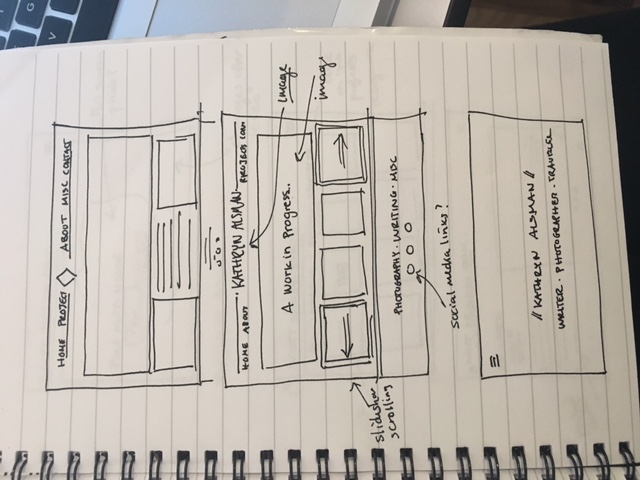 HOME PROJECT ABOUT MISC CONTACT
HOME ABOUT · KATHRYN ALSMAN · PROJECTS
A work in Progress..
image
image
slideshow
scrolling
PHOTOGRAPHY · WRITING · MISC
social media links?
// KATHRYN ALSMAN //
WRITER · PHOTOGRAPHER · TRAVELER